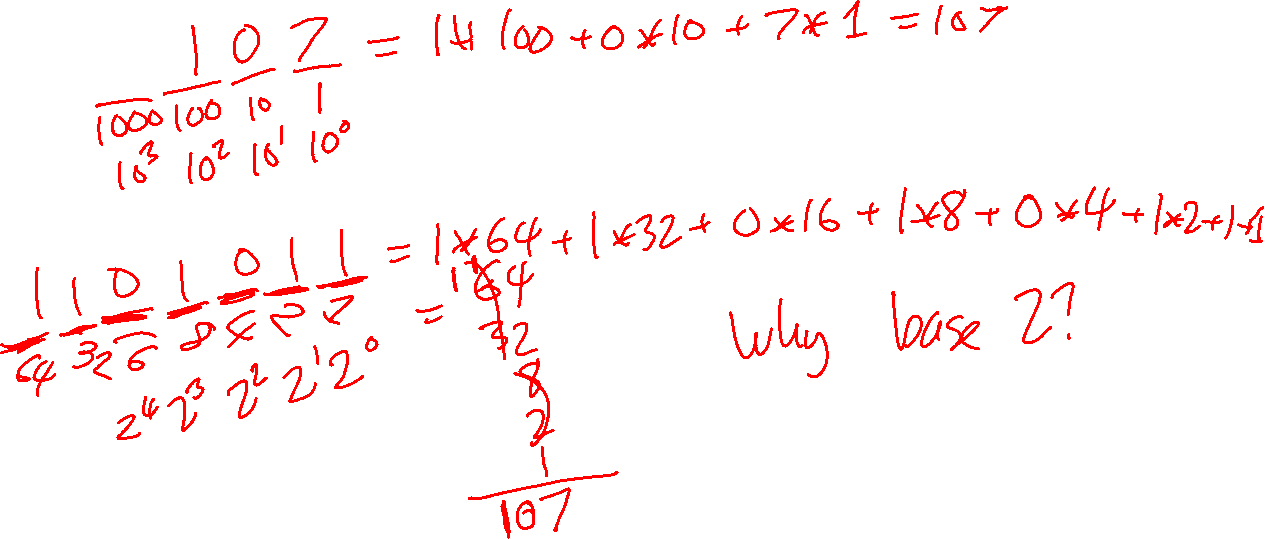 1 0 7 = 1 * 100 + 0 * 10 + 7 * 1 = 107
1000 100 10 1
10³ 10² 10¹ 10⁰
1 1 0 1 0 1 1 = 1*64 + 1*32 + 0*16 + 1*8 + 0*4 + 1*2 + 1*1
64 32 8 4 2 = 64
2⁴ 2³ 2² 2¹ 2⁰
32
Why base 2?
8
2
1
107